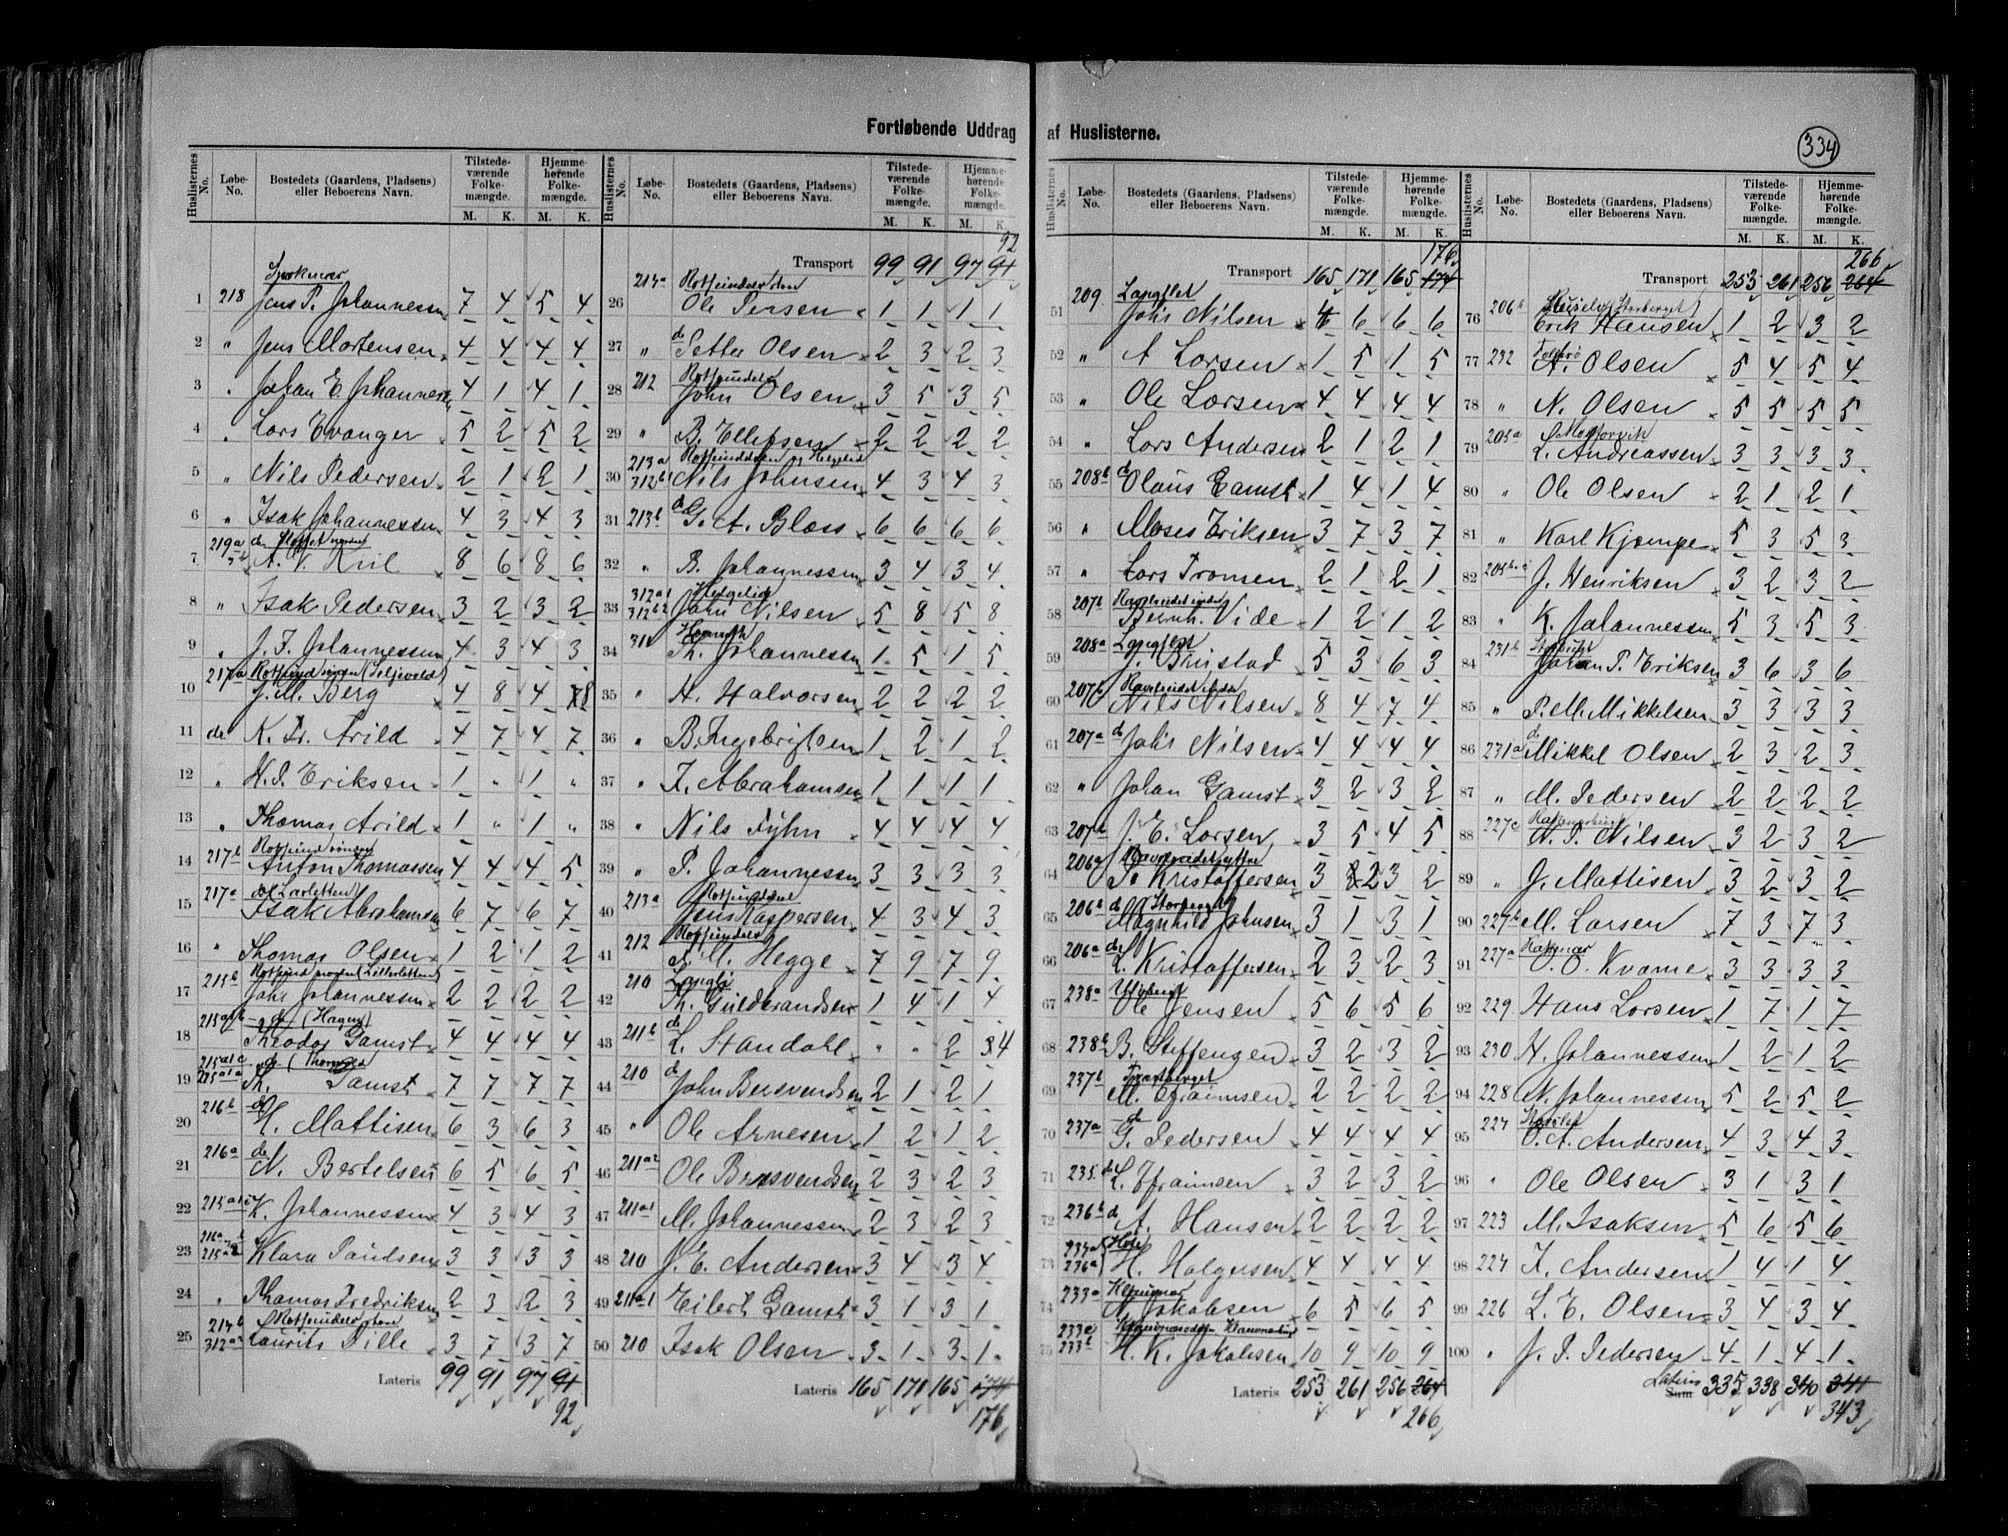 Fortløbende Uddrag af Huslisterne.
334
Huslisternes No. Løbe-No. Bostedets (Gaardens, Pladsens) eller Beboerens Navn. Tilstedeværende Folkemængde. M. K. Hjemmehørende Folkemængde. M. K.
1 218 Jens P. Johannessen 7 4 5 4
2 " Jens Mortensen 4 4 4 4
3 " Johan E. Johannessen 4 1 4 1
4 " Lars Evanger 5 2 5 2
5 " Nils Pedersen 2 1 2 1
6 " Isak Johannessen 4 3 4 3
7 219a A. V. Kiil 8 6 8 6
8 " Isak Pedersen 3 2 3 2
9 " J. F. Johannessen 4 3 4 3
10 217a J. M. Berg 4 8 4 8
11 do K. Fr. Arild 4 7 4 7
12 " H. P. Eriksen 1 " 1 "
13 " Thomas Arild 1 " 1 "
14 217b Anton Thomassen 4 4 4 5
15 217a Isak Abrahamsen 6 7 6 7
16 " Thomas Olsen 1 2 1 2
17 215b Johs Johannessen 2 2 2 2
18 do (Hagen) Theodor Gamst 4 4 4 4
19 Th. Gamst 7 7 7 7
20 216b do H. Mattisen 6 3 6 3
21 216a do N. Bertelsen 6 5 6 5
22 K. Johannessen 4 3 4 3
23 Klara Paulsen 3 3 3 3
24 " Thomas Fredriksen 2 3 2 3
25 Laurits Dille 3 7 3 7
Lateris 99 91 97 91
92
Transport 99 91 97 91
92
26 Ole Persen 1 1 1 1
27 " do Petter Olsen 2 3 2 3
28 212 John Olsen 3 5 3 5
29 " B. Ellefsen 2 2 2 2
30 213a Nils Johnsen 4 3 4 3
31 213b do G. A. Blaess 6 6 6 6
32 " B. Johannessen 3 4 3 4
33 John Nilsen 5 8 5 8
34 311 Th. Johannessen 1 5 1 5
35 " A. Halvorsen 2 2 2 2
36 " B. Ingebrigtsen 1 2 1 2
37 " I. Abrahamsen 1 1 1 1
38 " Nils Fyhn 4 4 4 4
39 " P. Johannessen 3 3 3 3
40 213a Jens Kaspersen 4 3 4 3
41 212 J. M. Hegge 7 9 7 9
42 210 Th. Guldbrandsen 1 4 1 4
43 211b do L. Standahl " " 2 4
44 210 do John Bersvendsen 2 1 2 1
45 " Ole Arnesen 1 2 1 2
46 211a2 Ole Bersvendsen 2 3 2 3
47 211a1 M. Johannessen 2 3 2 3
48 210 J. E. Andersen 3 4 3 4
49 211a1 Eilert Gamst 3 1 3 1
50 210 Isak Olsen 3 1 3 1
Lateris 165 171 165 174
176
Transport 165 171 165 174
176
51 209 Langslet Johs Nilsen 4 6 6 6
52 " A. Larsen 1 5 1 5
53 " Ole Larsen 4 4 4 4
54 " Lars Andersen 2 1 2 1
55 208b do Olaus Gamst 1 4 1 4
56 " Moses Eriksen 3 7 3 7
57 " Lars Tronsen 2 1 2 1
58 207b Bernh. Vide 1 2 1 2
59 208a Langslet J. Brustad 5 3 6 3
60 207b Nils Nilsen 8 4 7 4
61 207a do Johs Nilsen 4 4 4 4
62 " Johan Gamst 3 2 3 2
63 207b J. E. Larsen 3 5 4 5
64 206a P. Kristoffersen 3 2 3 2
65 206b do Magnhild Johnsen 3 1 3 1
66 206a do L. Kristoffersen 2 3 2 3
67 238a Ole Jensen 5 6 5 6
68 238b B. Steffensen 3 2 3 2
69 237b M. Efraimsen 2 2 2 2
70 237a do G. Pedersen 4 4 4 4
71 235 do L. Efraimsen 3 2 3 2
72 236b do A. Hansen 2 2 2 2
73 H. Holgersen 4 4 4 4
74 233a N. Jakobsen 6 5 6 5
75 H. K. Jakobsen 10 9 10 9
Lateris 253 261 256 264
266
Transport 253 261 256 264
266
76 206b Erik Hansen 1 2 3 2
77 232 A. Olsen 5 4 5 4
78 " N. Olsen 5 5 5 5
79 205a L. Andreassen 3 3 3 3
80 " Ole Olsen 2 1 2 1
81 " Karl Kjempe 5 3 5 3
82 J. Henriksen 3 2 3 2
83 " K. Johannessen 5 3 5 3
84 231b Johan P. Eriksen 3 6 3 6
85 " P. M. Mikkelsen 3 3 3 3
86 231a do Mikkel Olsen 2 3 2 3
87 " M. Pedersen 2 2 2 2
88 227c N. P. Nilsen 3 2 3 2
89 " J. Mattisen 3 2 3 2
90 227b M. Larsen 7 3 7 3
91 227a O. O. Kvame 3 3 3 3
92 229 Hans Larsen 1 7 1 7
93 230 H. Johannessen 1 2 1 2
94 228 N. Johannessen 5 2 5 2
95 224 O. A. Andersen 4 3 4 3
96 " Ole Olsen 3 1 3 1
97 223 M. Isaksen 5 6 5 6
98 224 I. Andersen 1 4 1 4
99 226 L. E. Olsen 3 4 3 4
100 " J. P. Pedersen 4 1 4 1
Lateris Sum 335 338 340 341
343